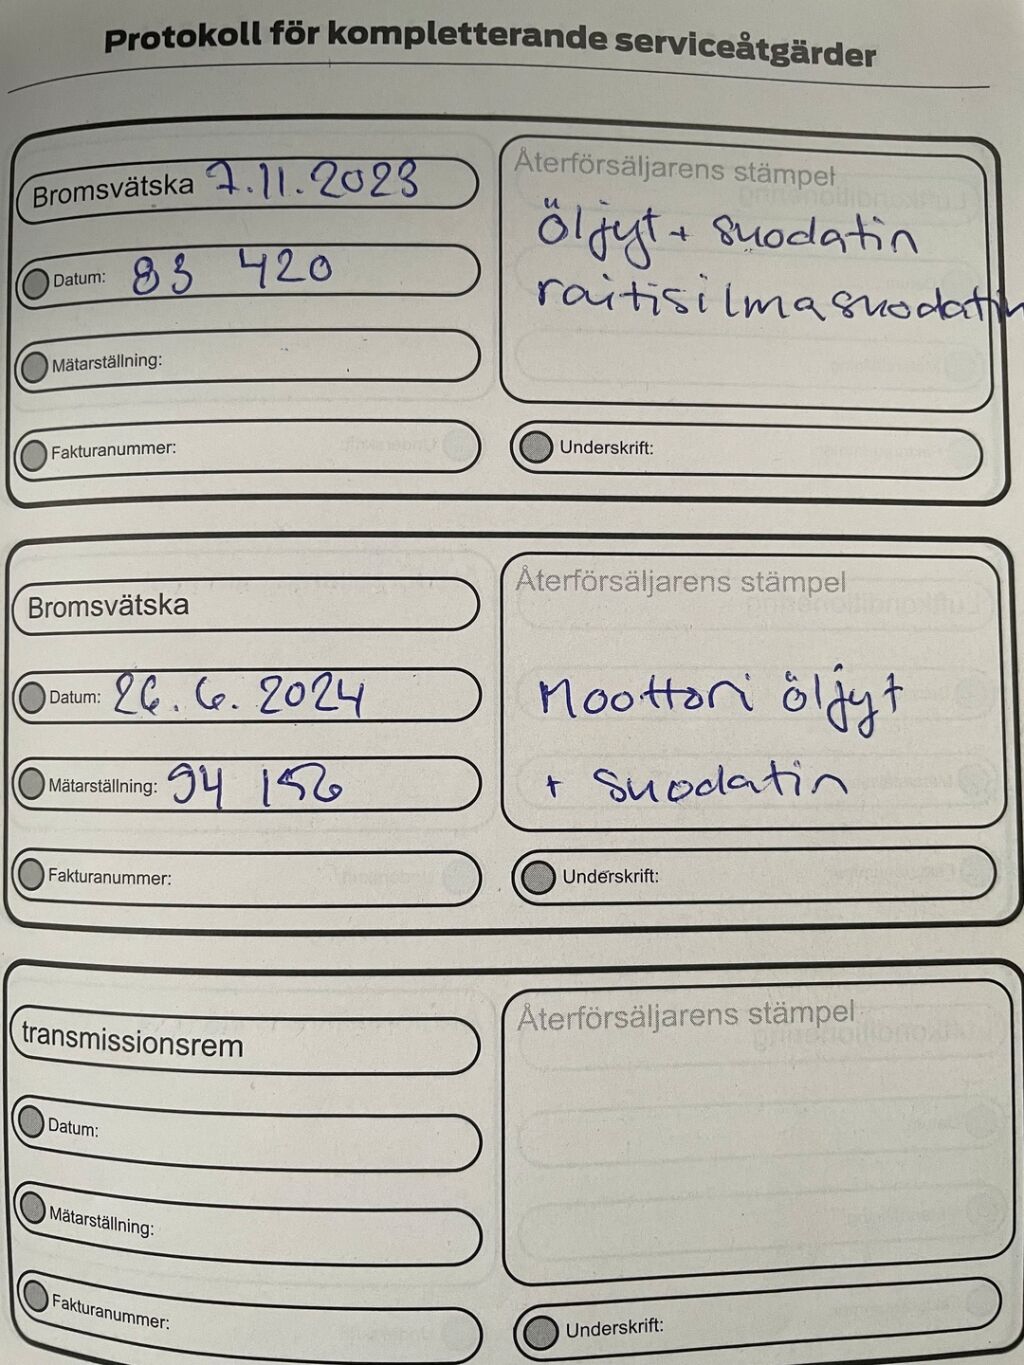 Protokoll för kompletterande serviceåtgärder
Bromsvätska 7.11.2023
Datum: 83 420
Mätarställning:
Fakturanummer:
Återförsäljarens stämpel
öljyt + suodatin
raitisilmasuodatin
Underskrift:
Bromsvätska
Datum: 26.6.2024
Mätarställning: 94 156
Fakturanummer:
Återförsäljarens stämpel
Moottori öljyt
+ suodatin
Underskrift:
transmissionsrem
Datum:
Mätarställning:
Fakturanummer:
Återförsäljarens stämpel
Underskrift: